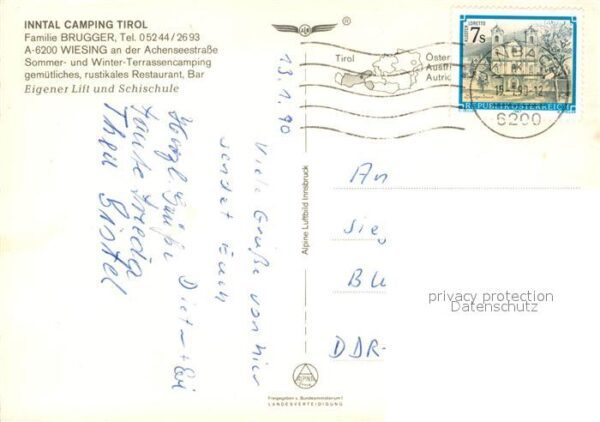 INNTAL CAMPING TIROL
Familie BRUGGER, Tel. 05244/2693
A-6200 WIESING an der Achenseestraße
Sommer- und Winter-Terrassencamping
gemütliches, rustikales Restaurant, Bar
Eigener Lift und Schischule
®
Tirol
Öster
Austri
Autric
KLOSTER LORETTO
7s
REPUBLIK ÖSTERREICH
6200
13.1.90
Viele Grüße von hier
sendet Euch
Dieter + 
Herzl. Grüße
Tante Frieda
Alpine Luftbild Innsbruck
An
Sie
Bl
DDR-
privacy protection
Datenschutz
ALPINE
Freigegeben v. Bundesministerium f.
LANDESVERTEIDIGUNG